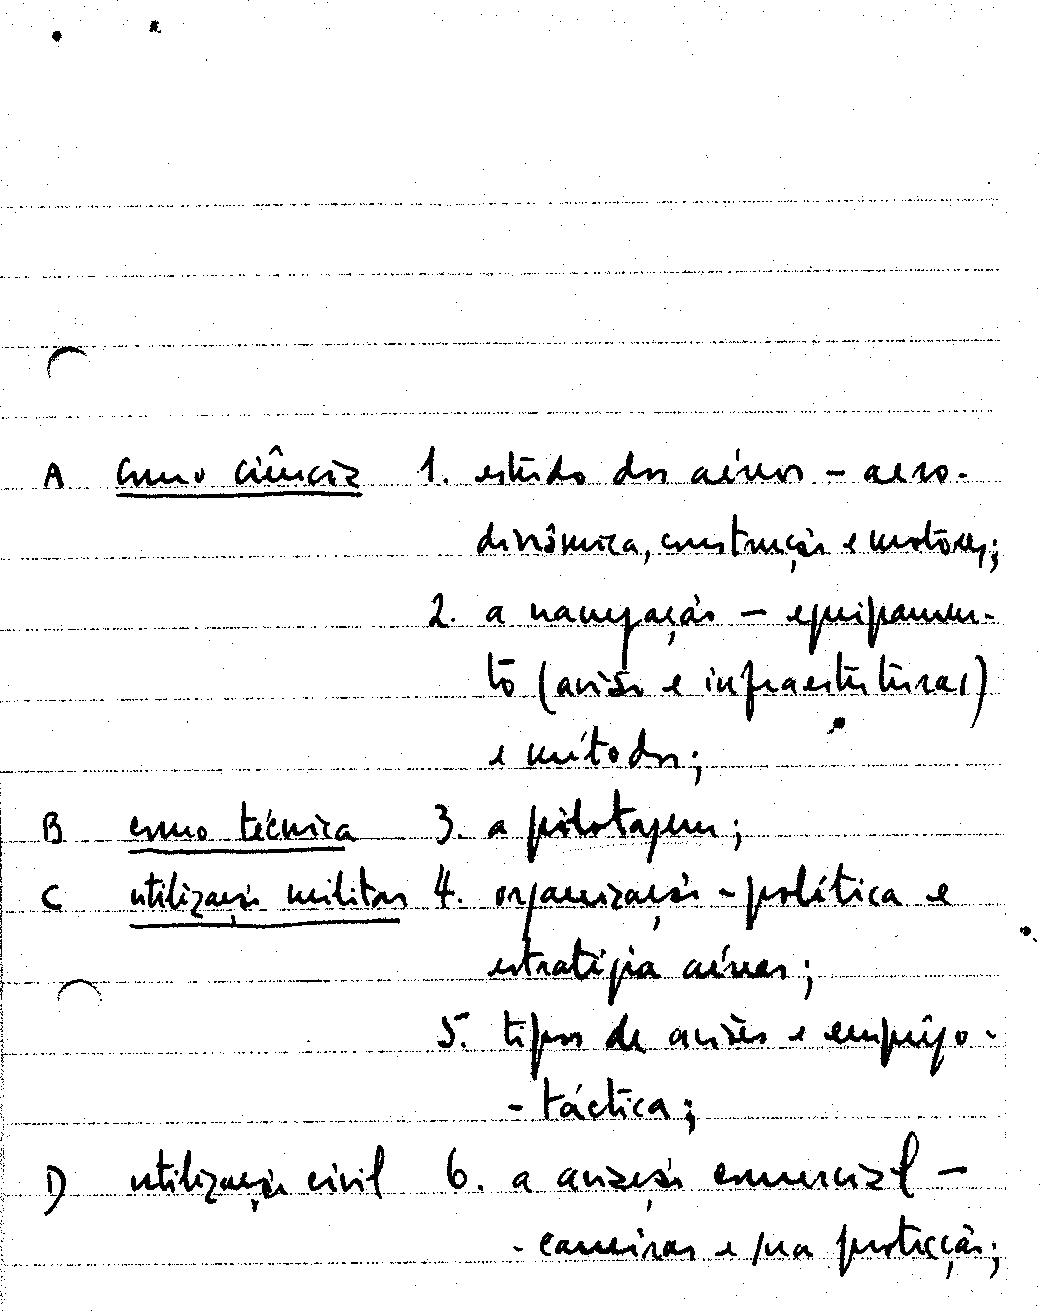 A como ciência 1. estudo dos aéreos – aero-
dinâmica, construção e motores;
2. a navegação – equipamen-
to (avião e infraestruturas)
e métodos;
B como técnica 3. a pilotagem;
C utilização militar 4. organização – política e
estratégia aéreas;
5. tipos de aviões e emprêgo -
- táctica;
D) utilização civil 6. a aviação comercial –
- carreiras e sua protecção;